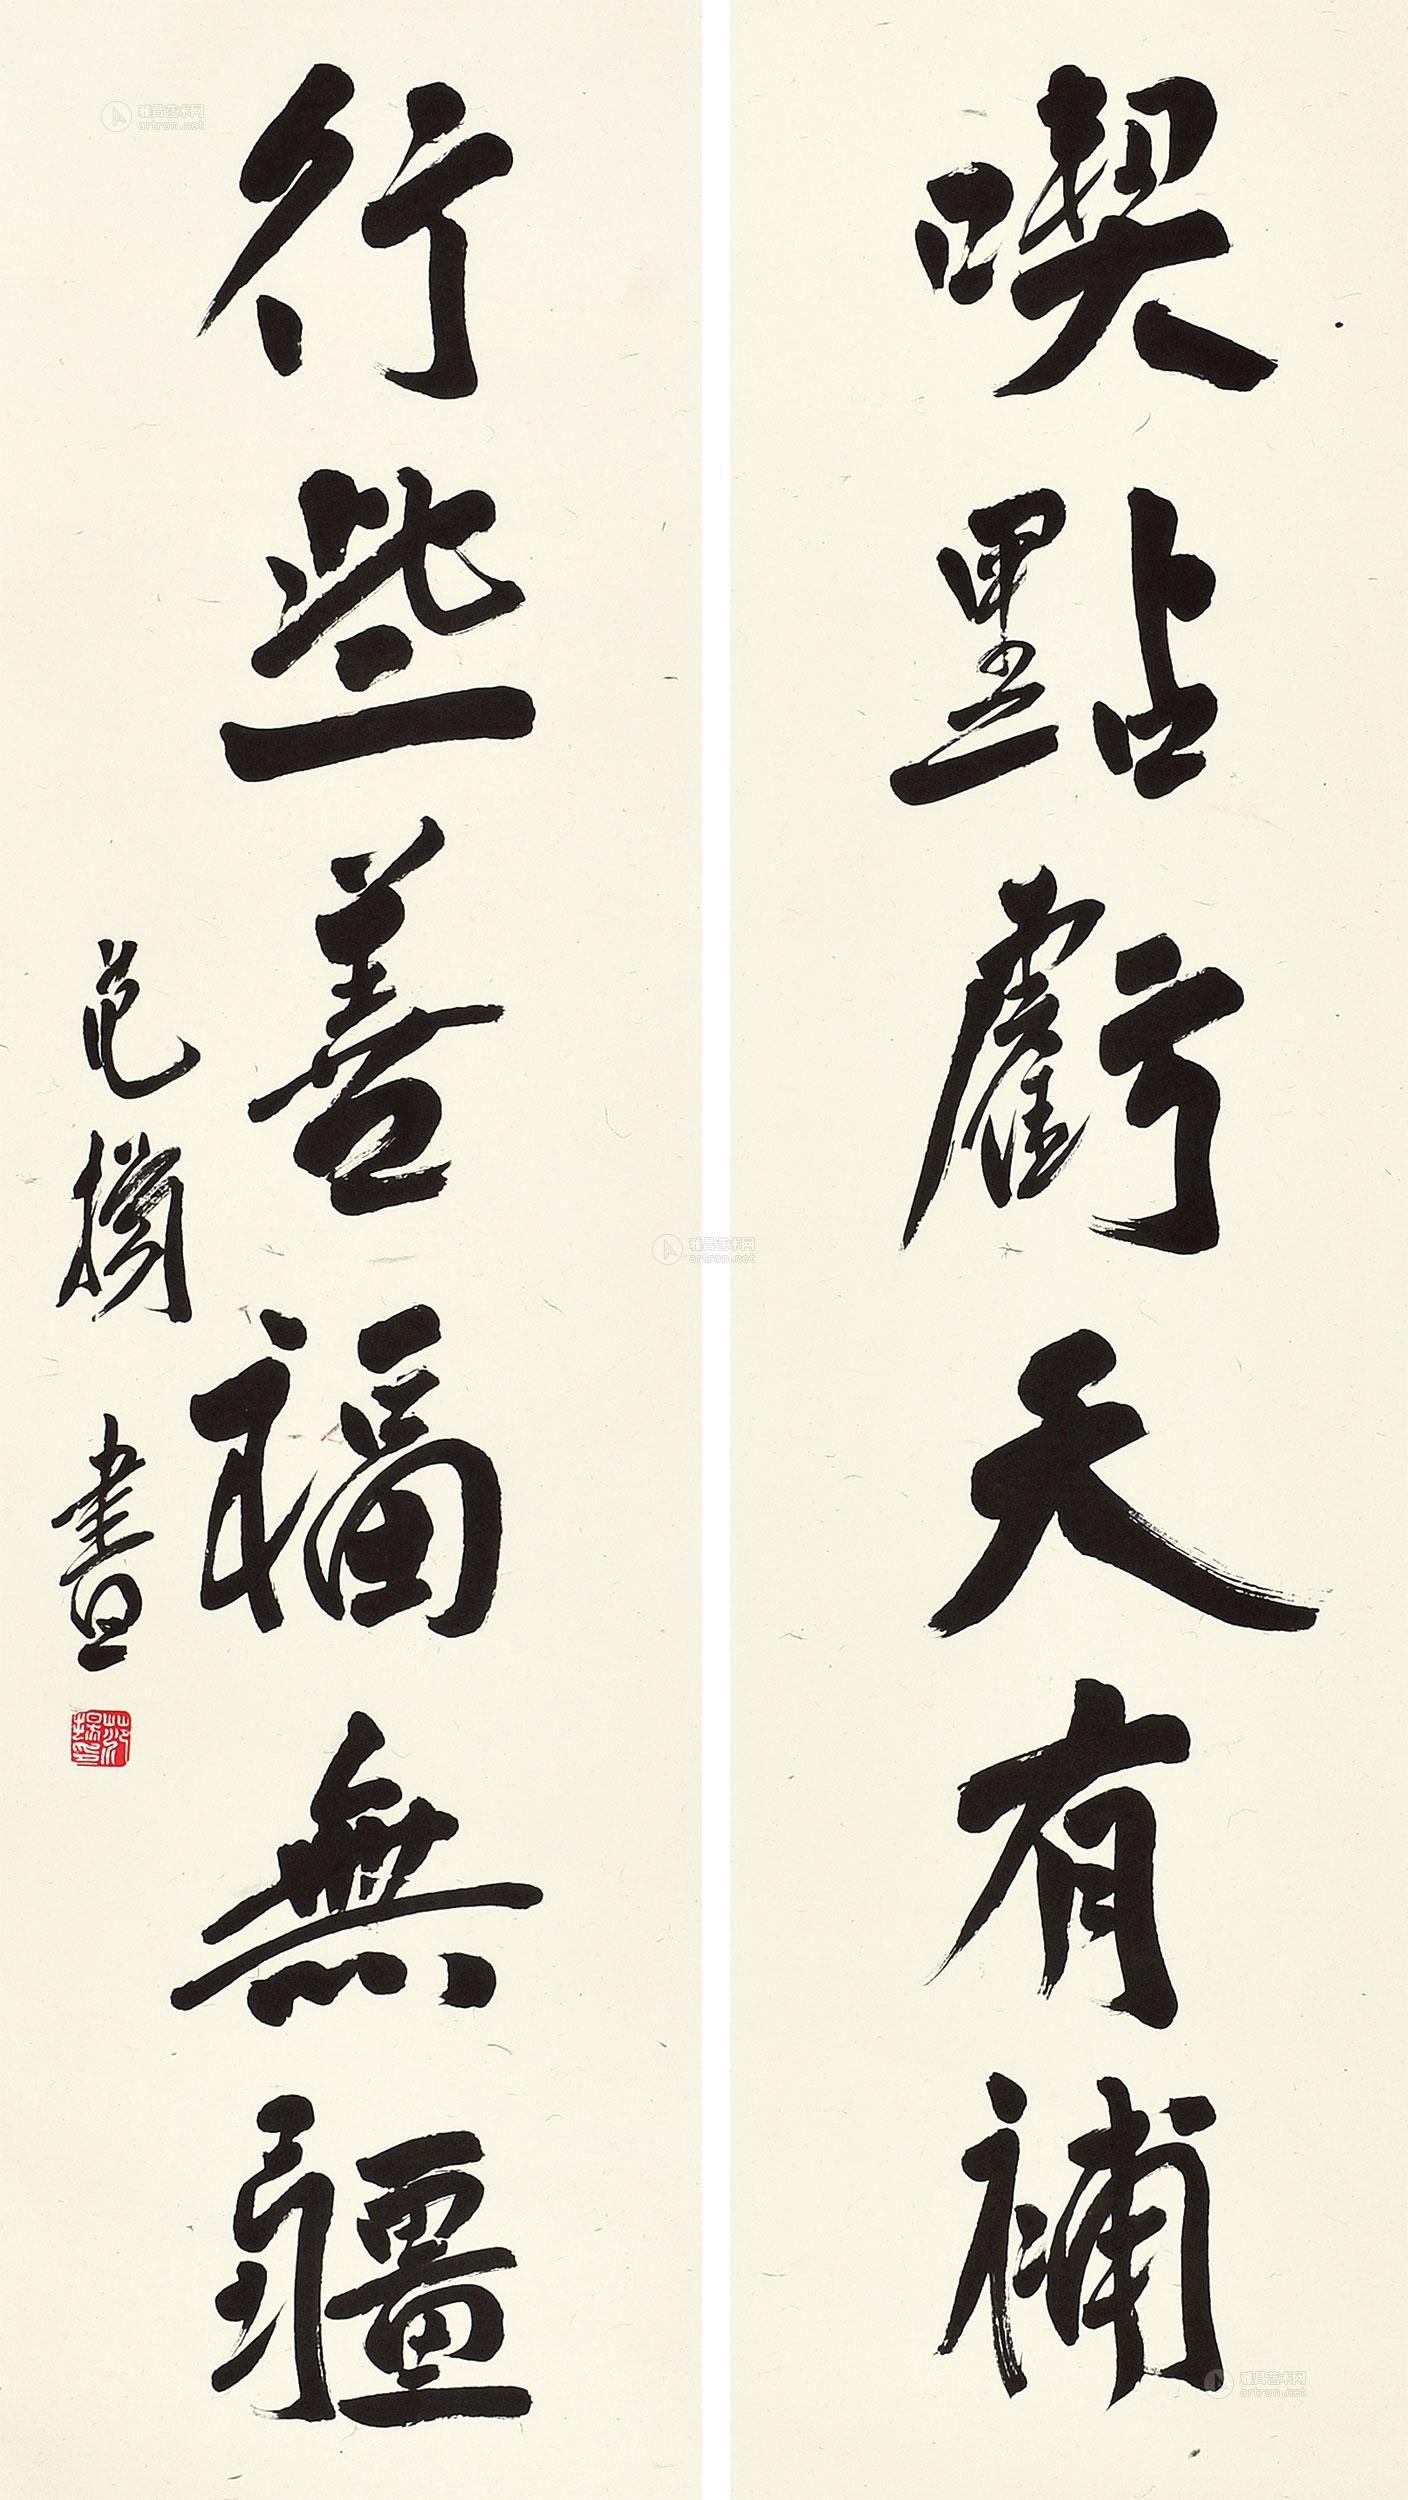 喫點虧天有補
行些善福無疆
范揚書
雅昌艺术网
artron.net
雅昌艺术网
artron.net
雅昌艺术网
artron.net